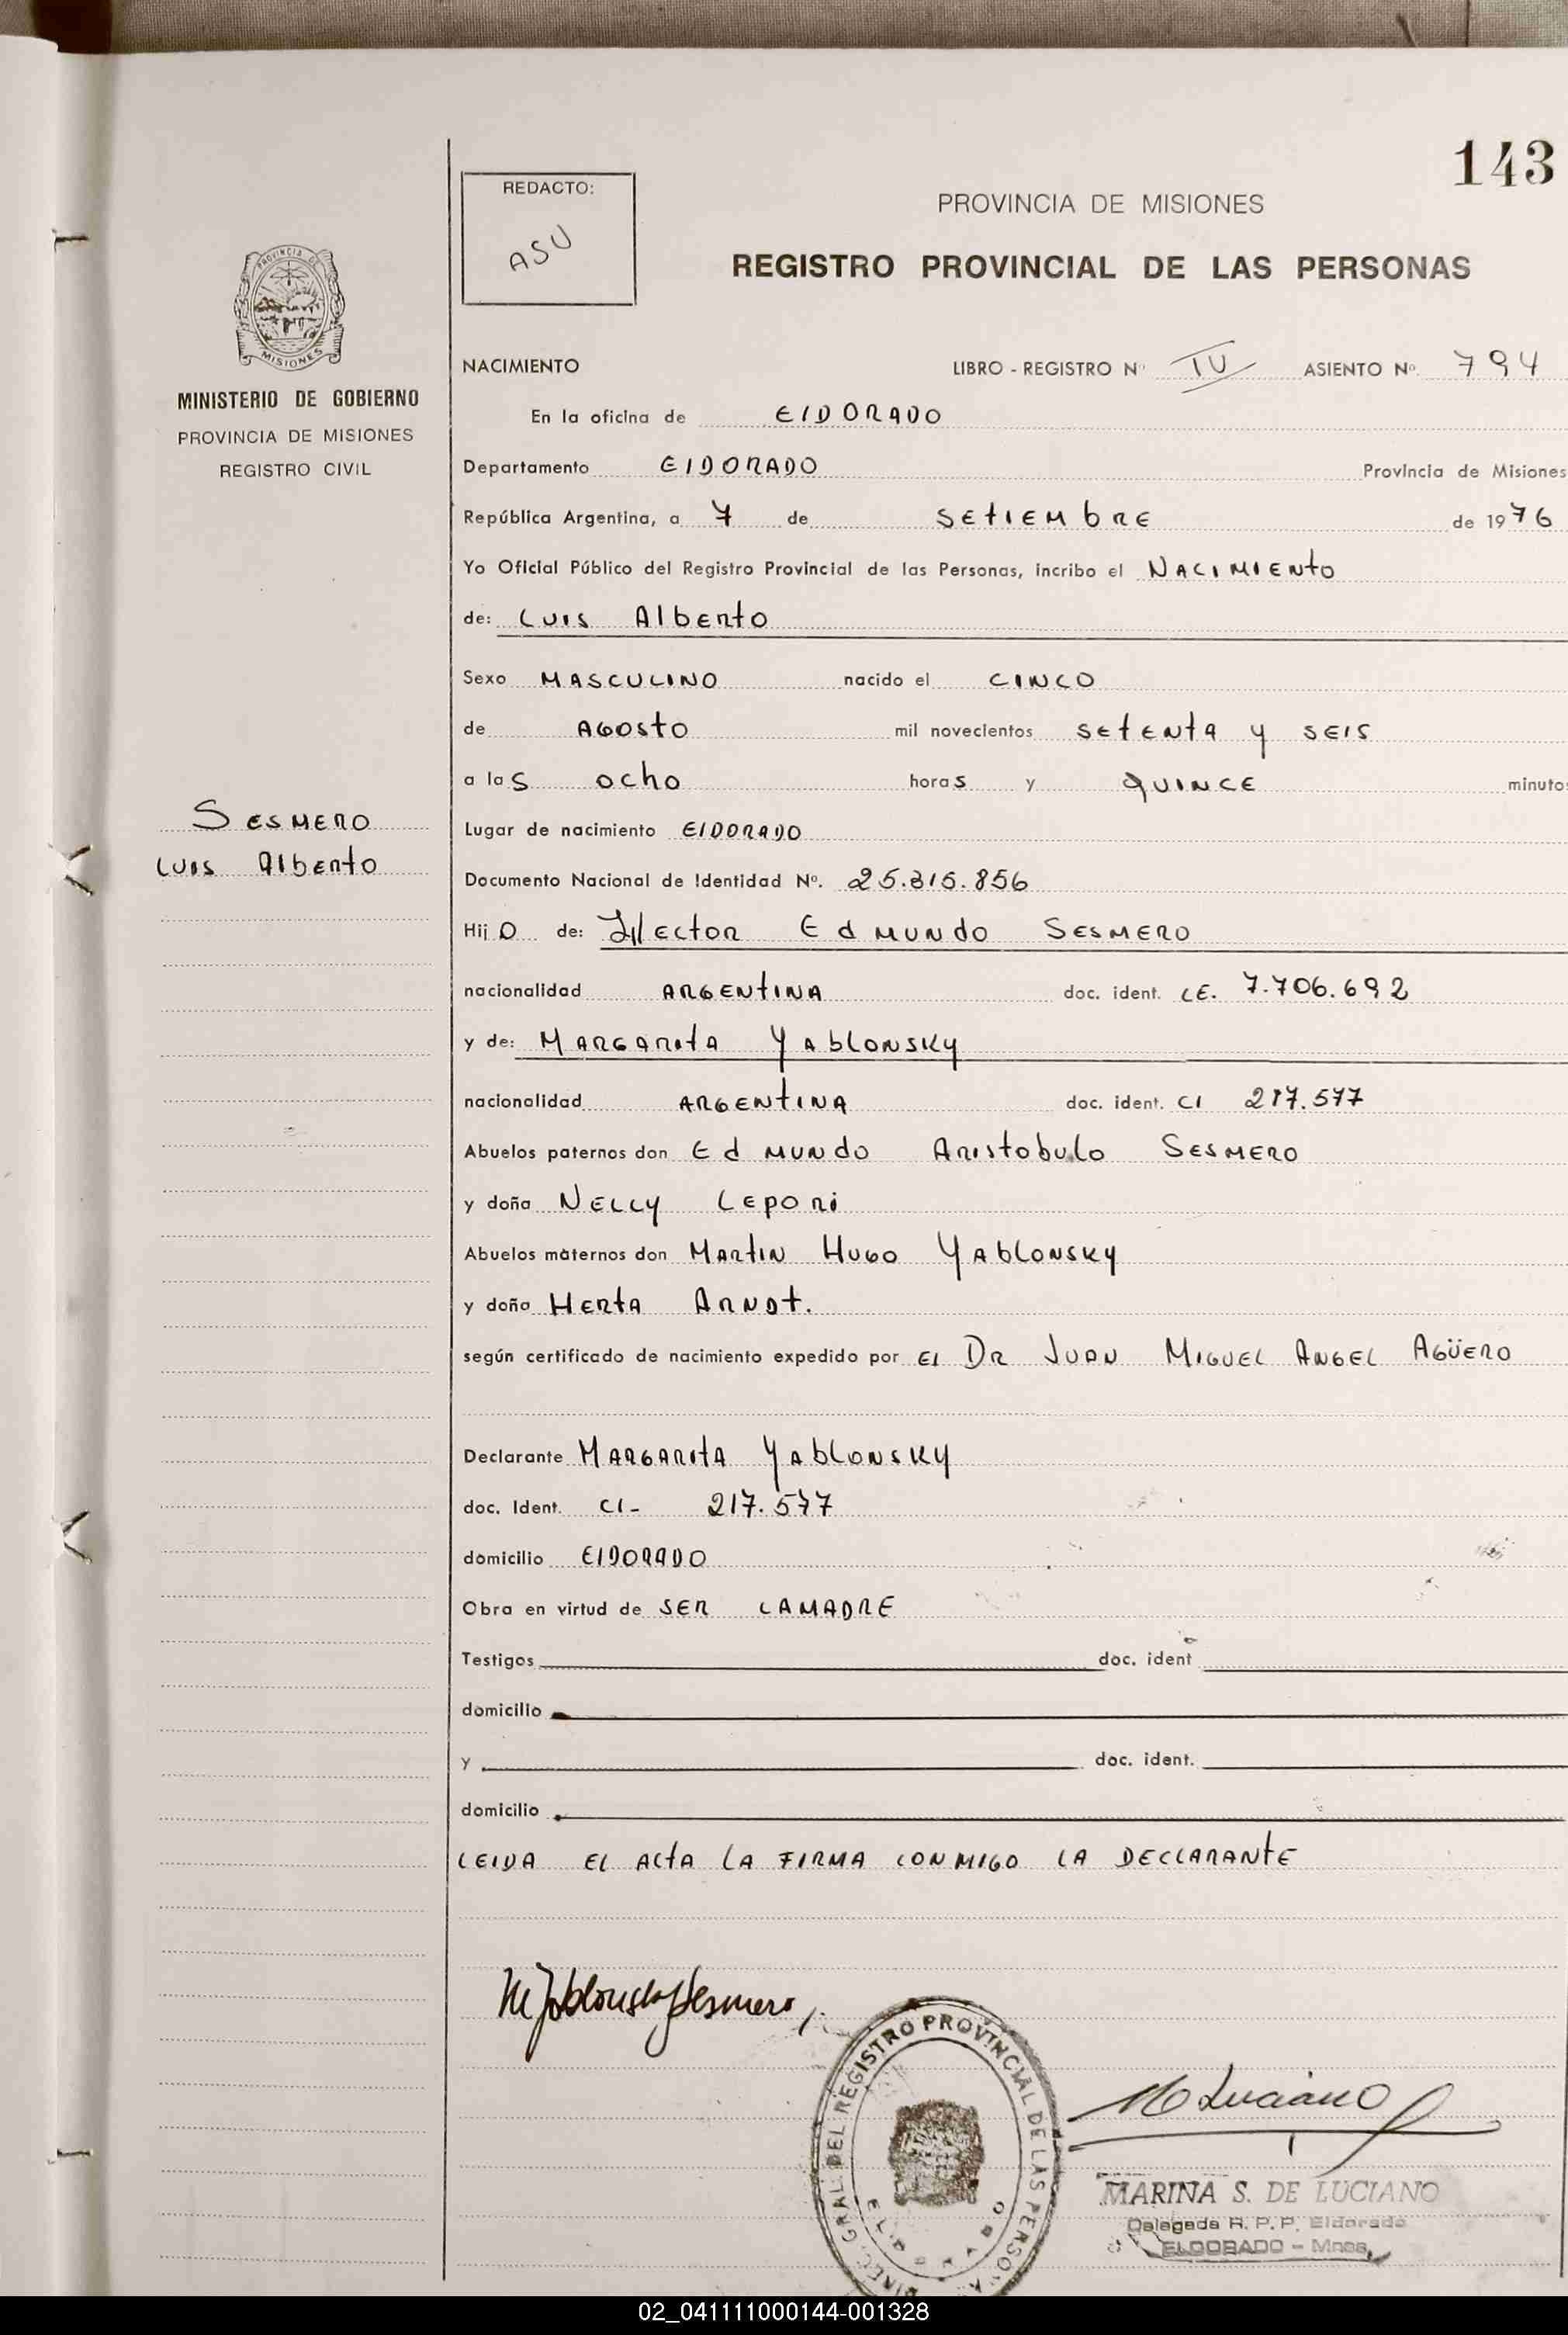 143
REDACTO:
ASU
PROVINCIA DE MISIONES
REGISTRO PROVINCIAL DE LAS PERSONAS
PROVINCIA DE
MISIONES
MINISTERIO DE GOBIERNO
PROVINCIA DE MISIONES
REGISTRO CIVIL
NACIMIENTO LIBRO - REGISTRO Nº IV ASIENTO Nº. 794
En la oficina de ElDORADO
Departamento ElDORADO Provincia de Misiones
República Argentina, a 7 de SEtIEMbRE de 1976
Yo Oficial Público del Registro Provincial de las Personas, incribo el NACIMIENto
de: LUIS AlbERto
Sexo MASCULINO nacido el CINCO
de AGOSto mil novecientos SEtENtA y SEIS
a las ocho horas y QUINCE minuto
SESMERO
LUIS AlbERto
Lugar de nacimiento ElDORADO
Documento Nacional de Identidad Nº. 25.315.856
HijO de: HEctOR EdMUNdo SESMERO
nacionalidad ARGENtINA doc. ident. LE. 7.706.692
y de: MARGARItA YAblONSKy
nacionalidad ARGENtINA doc. ident. CI 217.577
Abuelos paternos don EdMUNdo ARIStobulo SESMERO
y doña NELLy LEpoRi
Abuelos maternos don MARtIN HUGO YAblONSKy
y doña HERtA ARNDt.
según certificado de nacimiento expedido por El DR JUAN MIGUEL ANGEL AGÜERO
Declarante MARGARItA YAblONSKy
doc. Ident. CI- 217.577
domicilio ElDORADO
Obra en virtud de SER LAMADRE
Testigos doc. ident
domicilio
y doc. ident.
domicilio
LEIDA El ActA LA FIRMA CONMIGO LA DECLARANtE
M Luciano
DIREC. GRAL. DEL REGISTRO PROVINCIAL DE LAS PERSONAS
ELDORADO
MARINA S. DE LUCIANO
Delegada R. P. P. Eldorado
ELDORADO - Mnes.
02_041111000144-001328